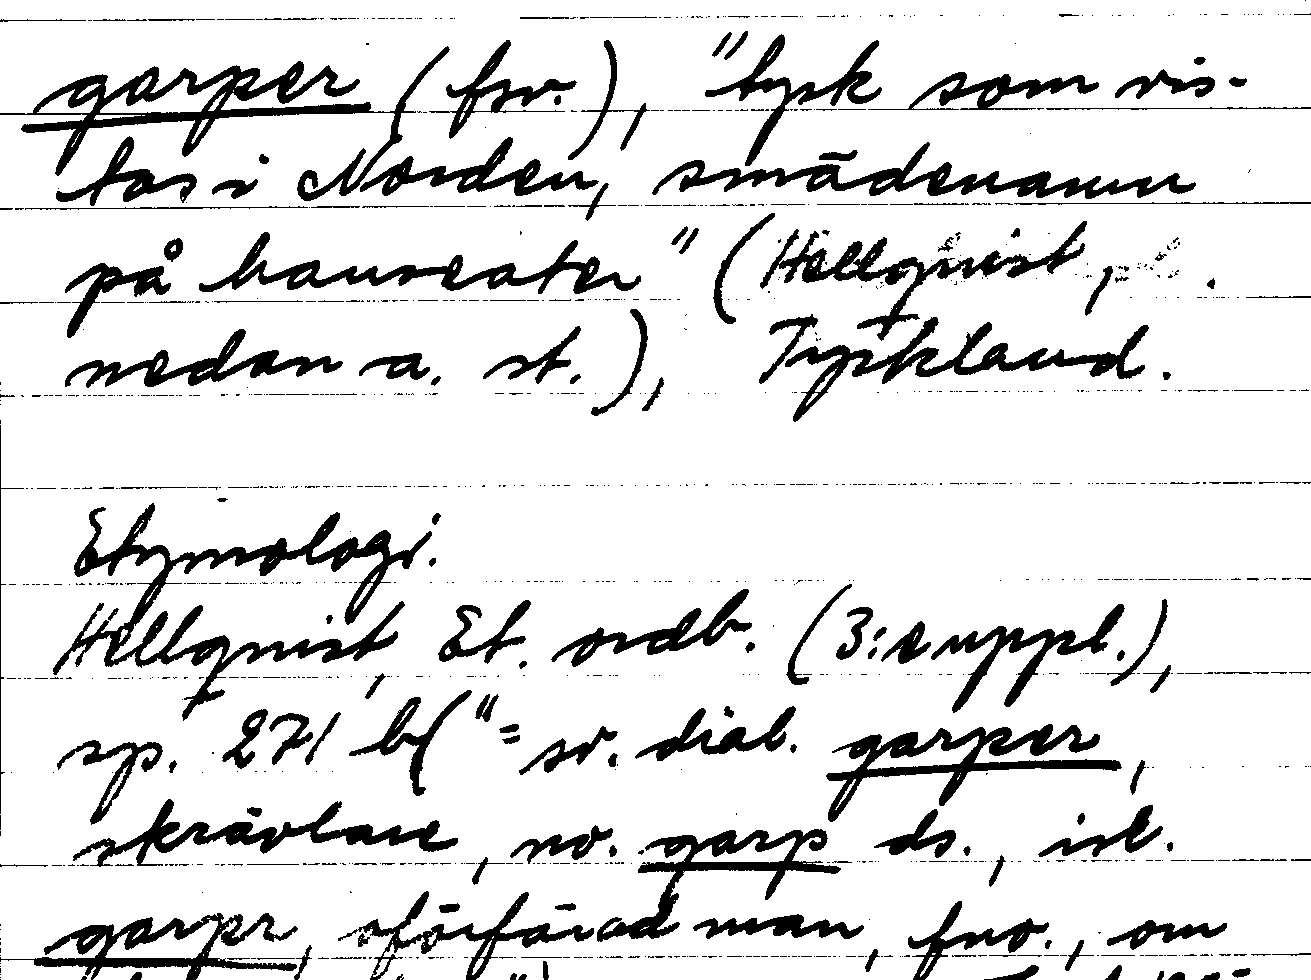 garper (fsv.), "tysk som vis-
tas i Norden, smädenamn
på hanseater" (Hellquist,
nedan a. st.), Tyskland.
Etymologi.
Hellquist, Et. ordb. (3:e uppl.),
sp. 271 b ("= sv. dial. garper,
skrävlare, no. garp ds., isl.
garpr, oförfärad man, fno., om